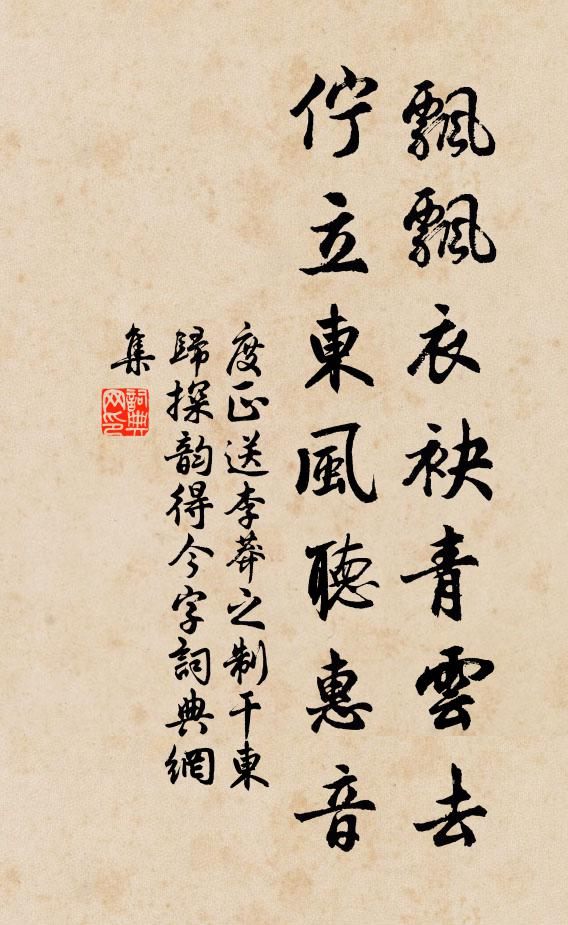 飄飄衣袂青雲去
佇立東風聽惠音
度正送李莽之制干東
歸探韵得今字詞典網
集
詞典
网印